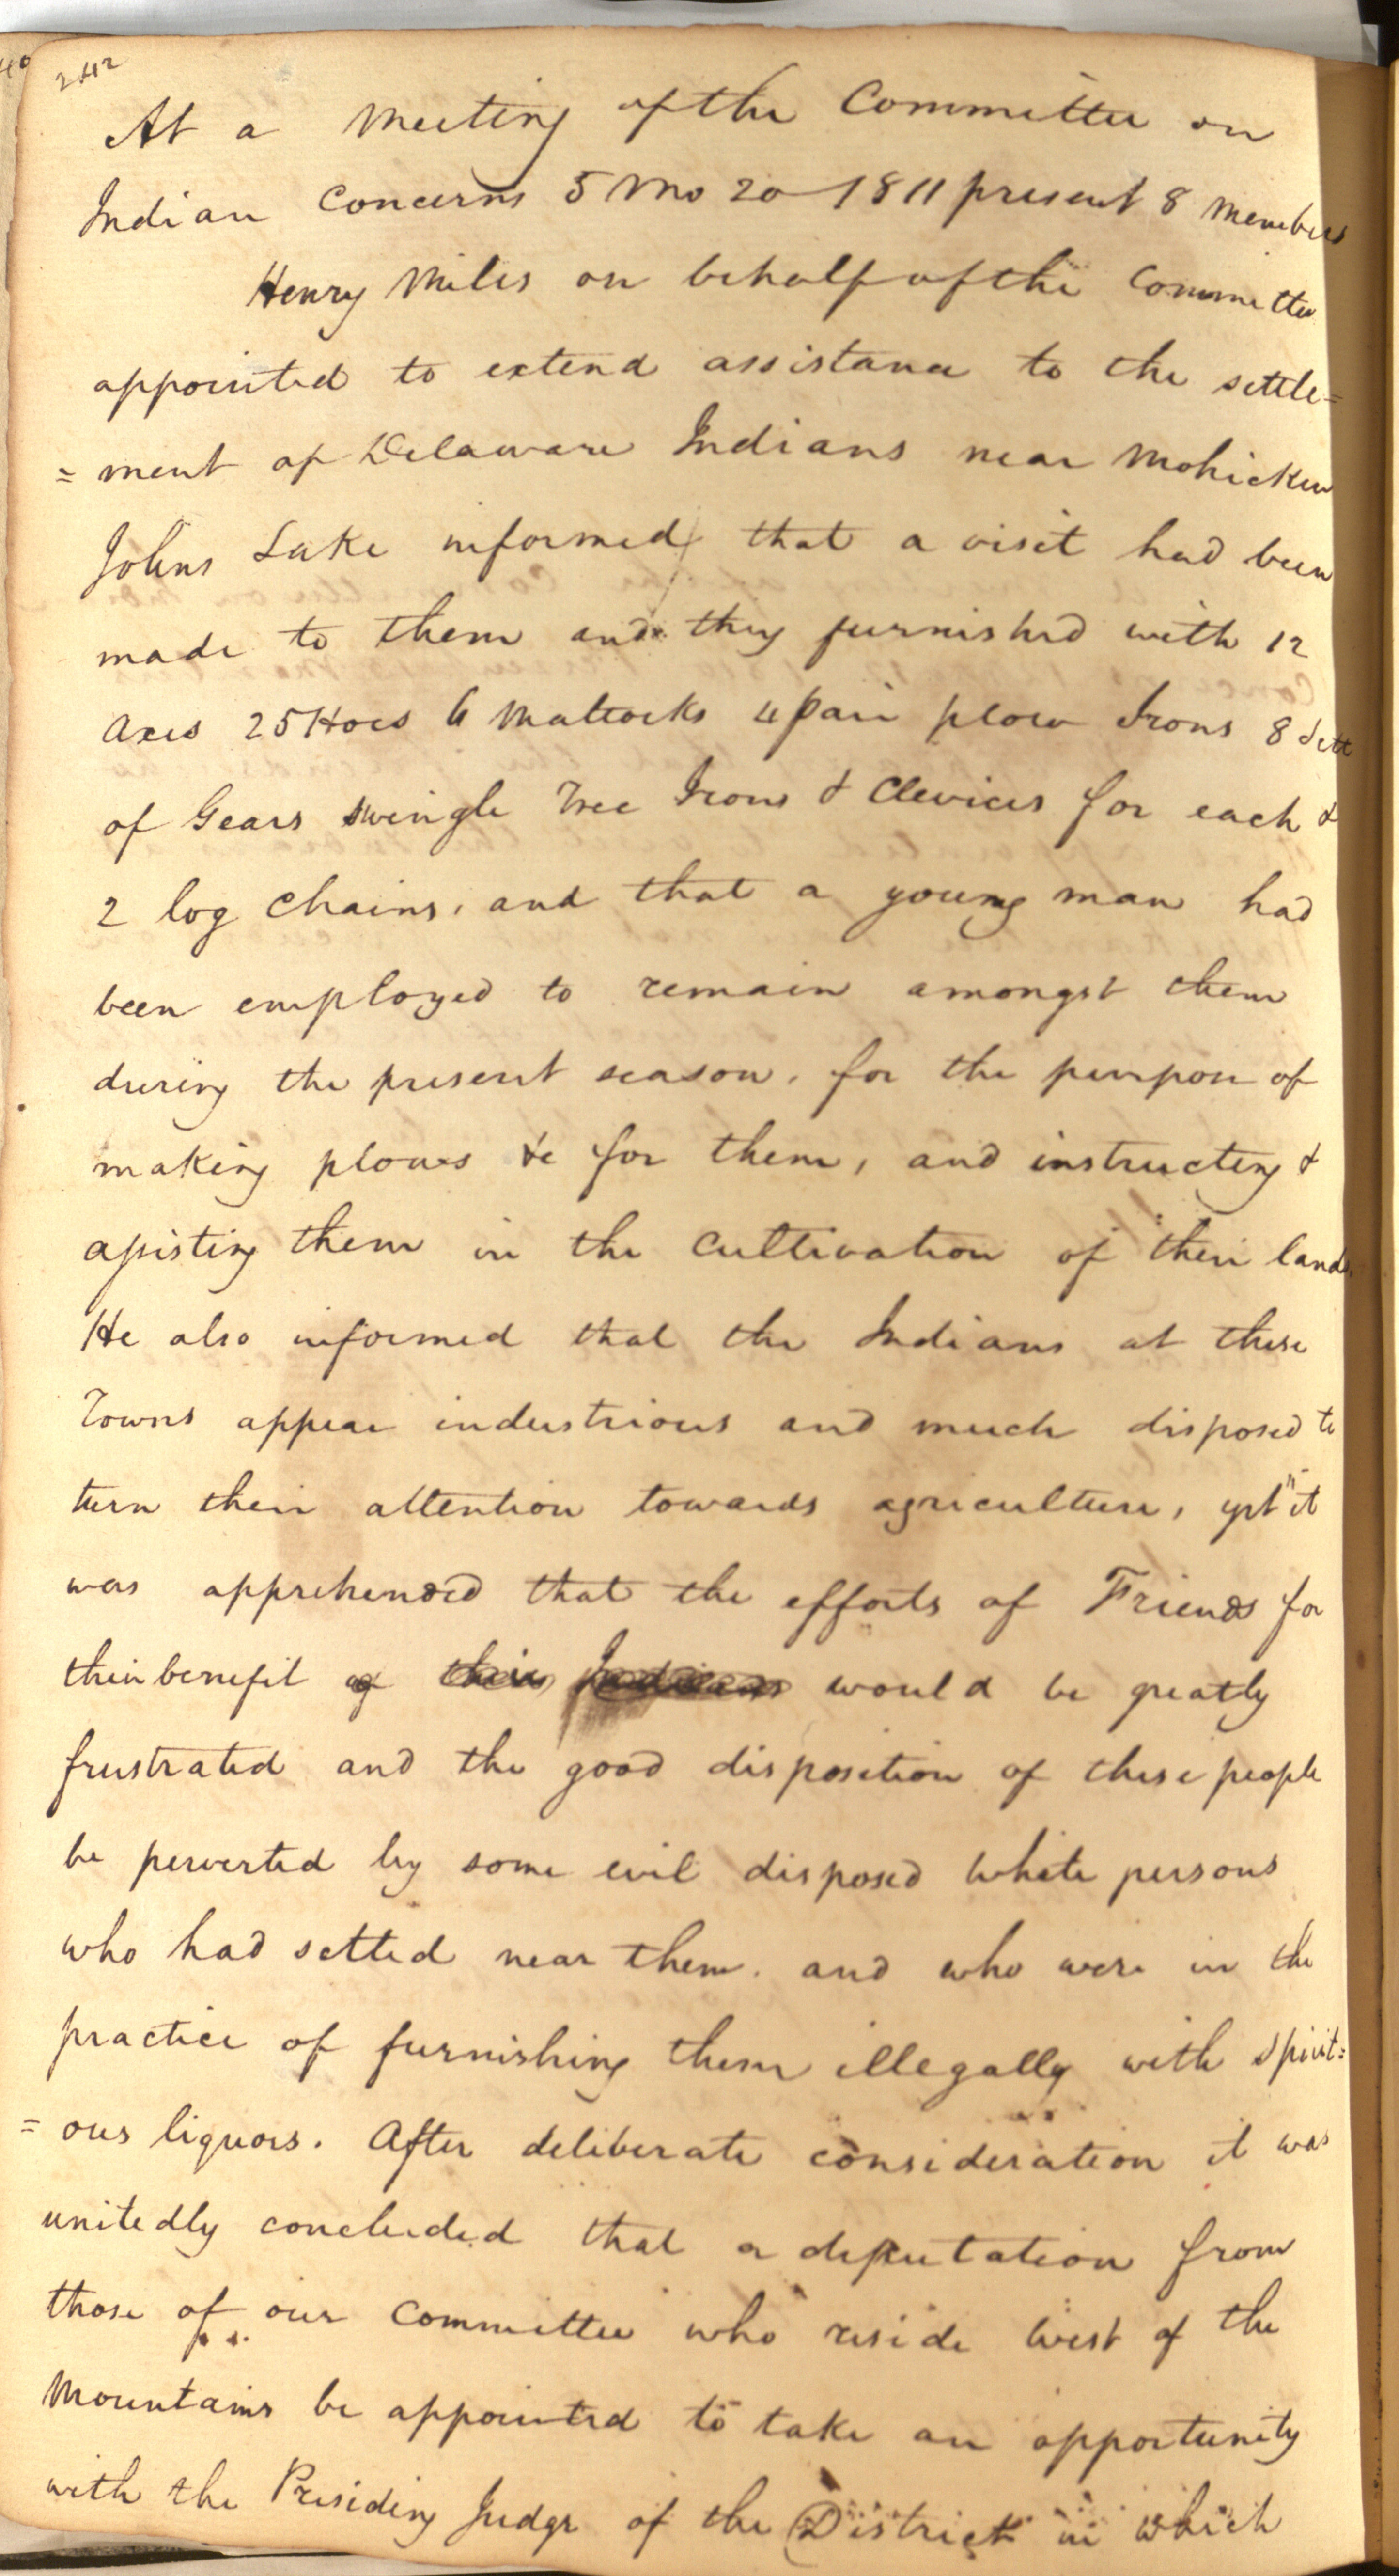 242
At a Meeting of the Committee on
Indian Concerns 5 Mo 20 1811 present 8 Members
Henry Miles on behalf of the Committee
appointed to extend assistance to the settle=
=ment of Delaware Indians near Mohicken
Johns Lake informed that a visit had been
made to them and they furnished with 12
Axes 25 Hoes 6 Mattocks 4 pair plow Irons 8 Sett
of Gears swingle Tree Irons & Clevices for each &
2 log Chains, and that a young man had
been employed to remain amongst them
during the present season, for the purpose of
making plows &c for them, and instructing &
assisting them in the cultivation of their land.
He also informed that the Indians at these
Towns appear industrious and much disposed to
turn their attention towards agriculture, yet it
was apprehended that the efforts of Friends for
their benefit of their Indians would be greatly
frustrated and the good disposition of these people
be perverted by some evil disposed white persons
who had settled near them. and who were in the
practice of furnishing them illegally with Spirit=
=ous liquors. After deliberate consideration it was
unitedly concluded that a deputation from
those of our Committee who reside West of the
Mountains be appointed to take an opportunity
with the Presiding Judge of the District in which